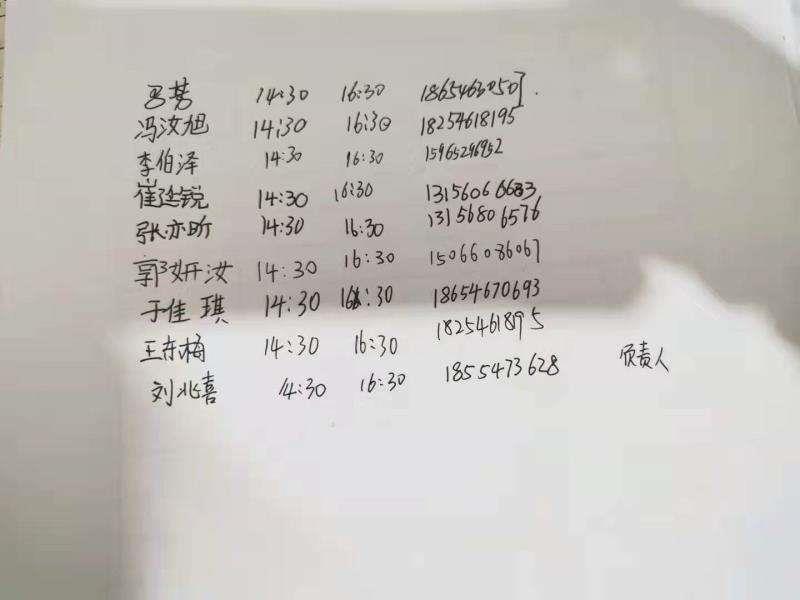 14:30 16:30 18654630507
冯汝旭 14:30 16:30 18254618195
李伯泽 14:30 16:30 15965296952
崔廷锐 14:30 16:30 13156066633
张亦昕 14:30 16:30 13156806576
郭妍汝 14:30 16:30 15066086067
于佳琪 14:30 16:30 18654670693
王东梅 14:30 16:30 1825461895
刘兆喜 14:30 16:30 1855473628 负责人